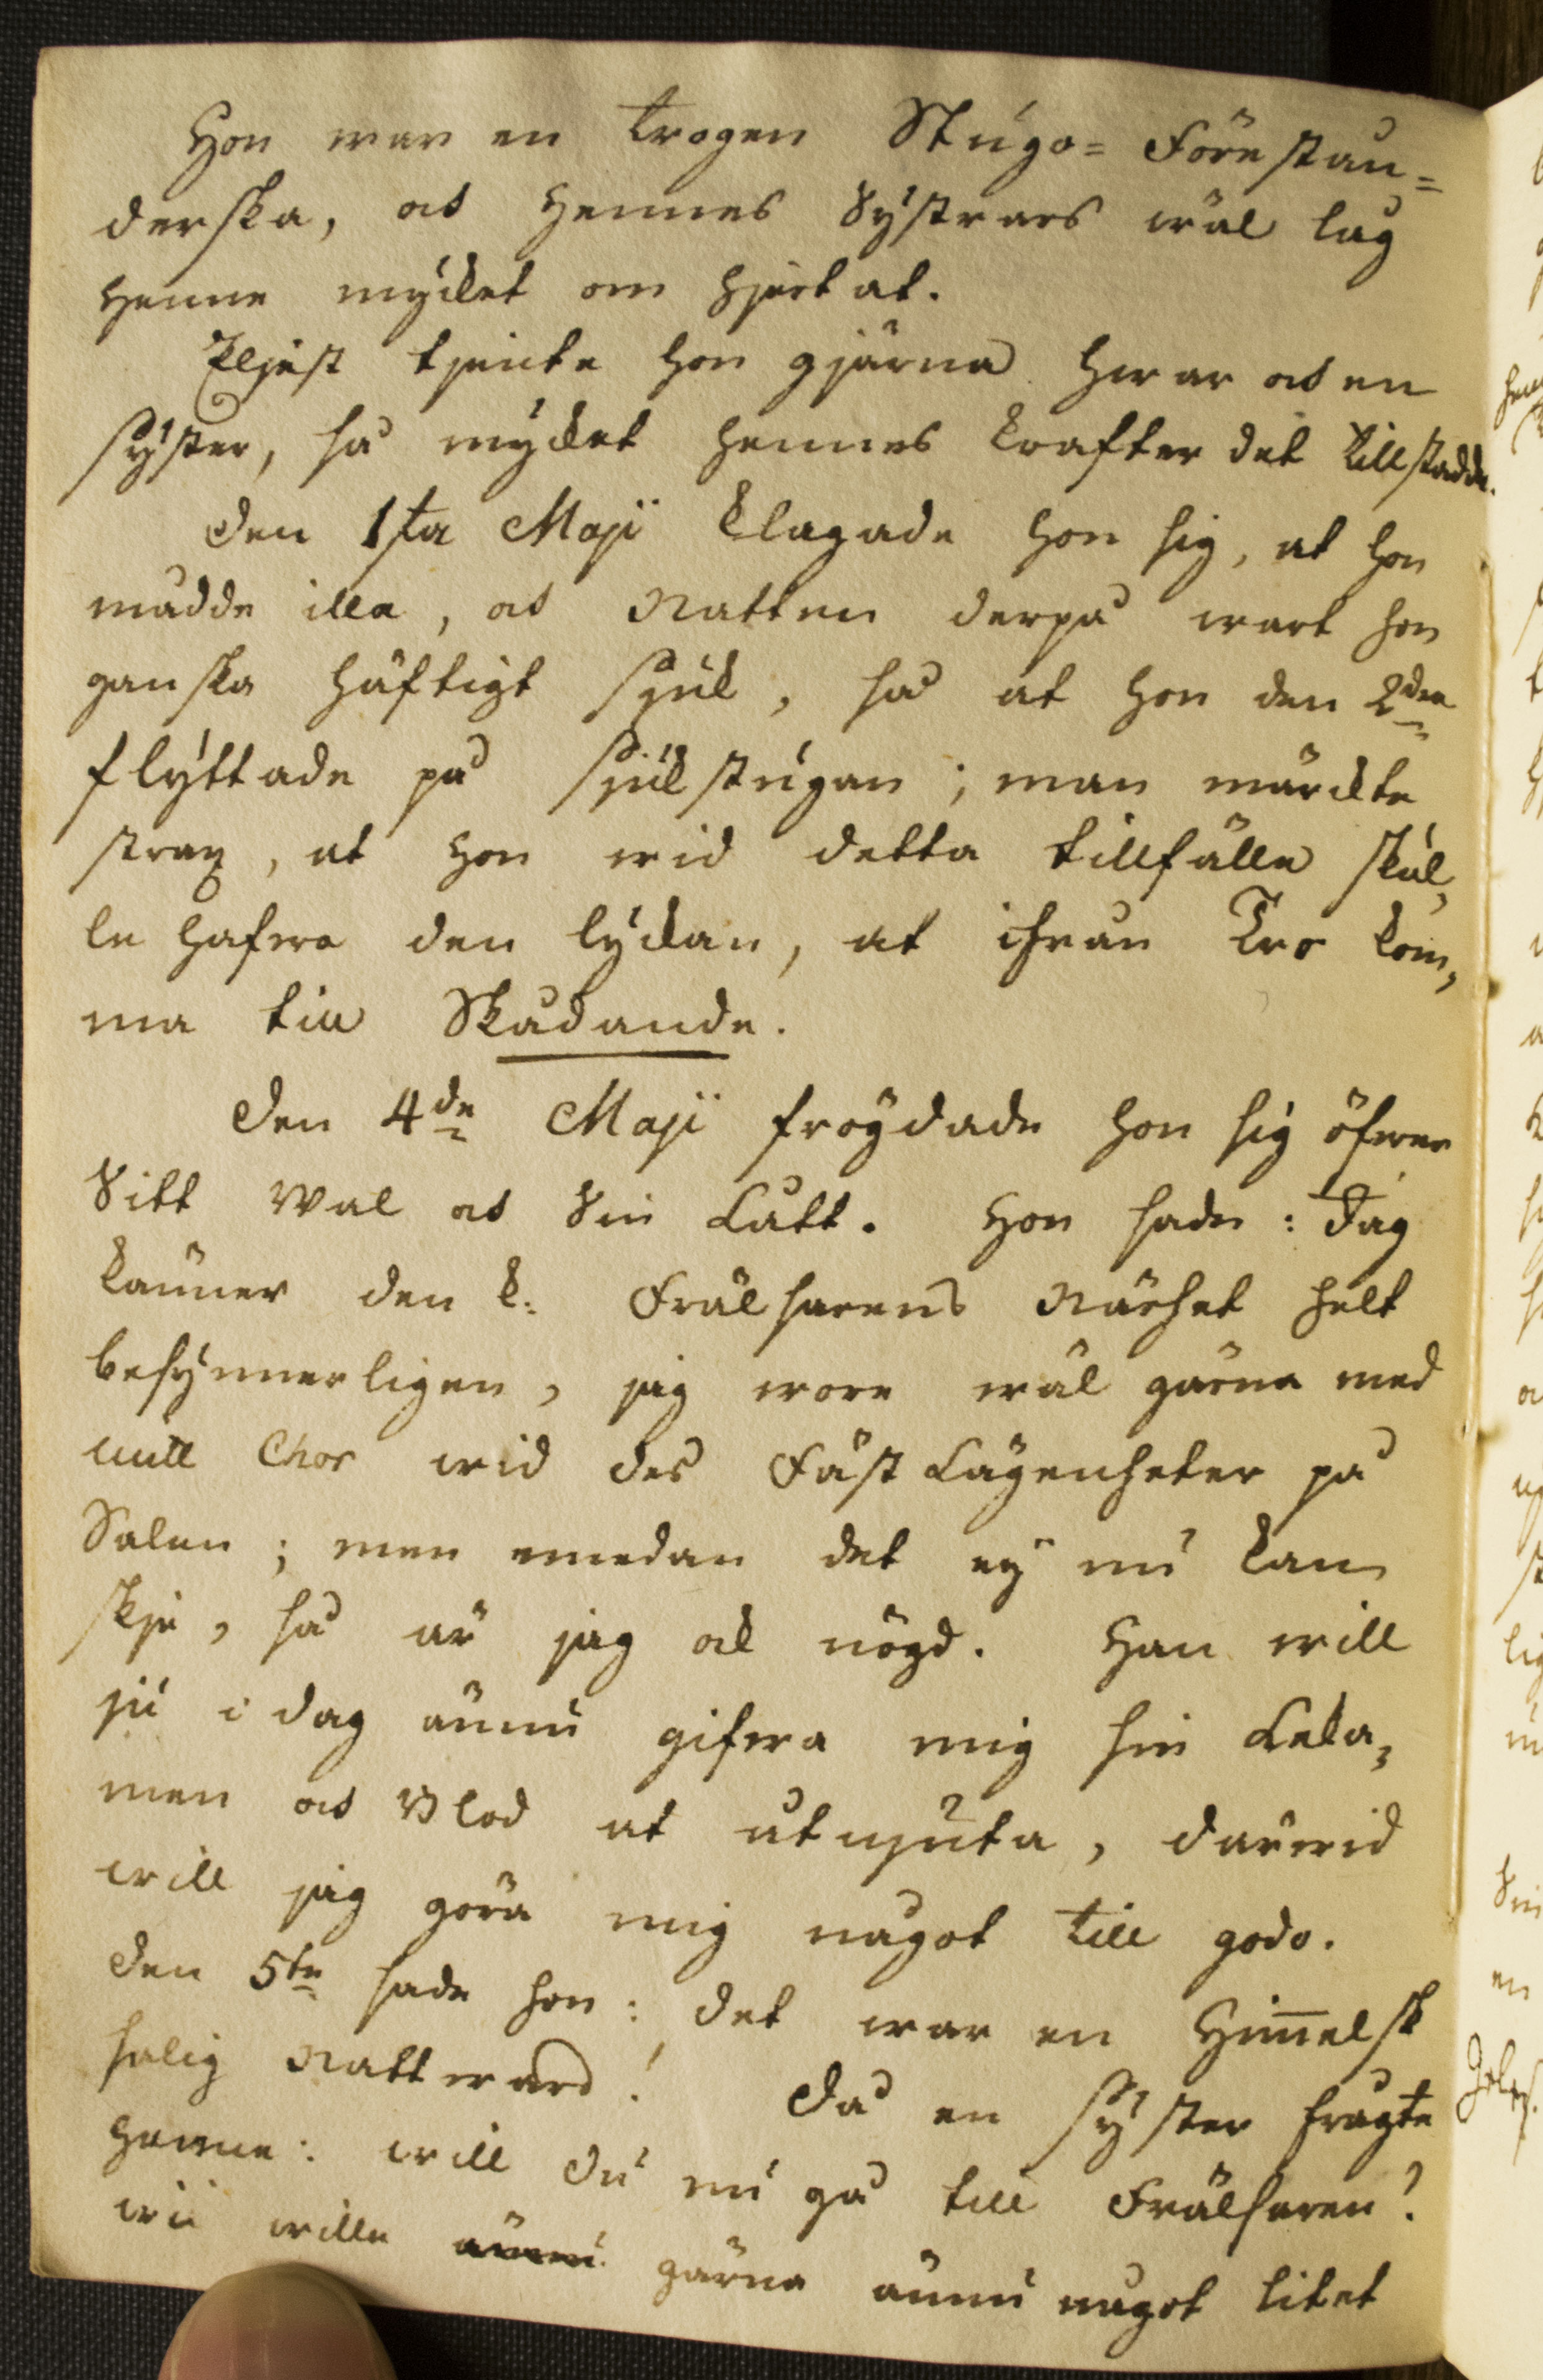 Hon war en trogen Stugo= Förestån=
derska, och Hennes Systrars wäl låg
Henne mycket om Hjertat.
Eljest tjente hon gjärna hwar och en
syster, så mycket hennes krafter det tillstadde.
Den 1sta Maji klagade hon sig, at hon
mådde illa, och Natten derpå wart hon
ganska häftigt sjuk, så at hon den 2dra
flyttade på Sjukstugan; man märckte
strax, at hon wid detta tillfälle skul,
le hafwa den lyckan, at ifrån Tro kom,
ma till Skådande.
Den 4de Maji fröÿdade hon sig öfwer
Sitt Wal och Sin Lått. Hon sade: Jag
känner den k: Frälsarens Närhet helt
besynnerligen, jag wore wäl gärna med
mitt Chor wid des Fäst Lägenheter på
Salen; men emedan det eÿ nu kan
skje, så är jag ock nögd. Han will
ju i dag ännu gifwa mig sin Leka,
men och Blod at utnjuta, därwid
will jag göra mig något till godo.
Den 5te sade hon: det war en Himelsk
salig Nattward! Då en syster frågte
Henne: will Du nu gå till Frälsaren?
wii wille ännu gärna ännu något litet